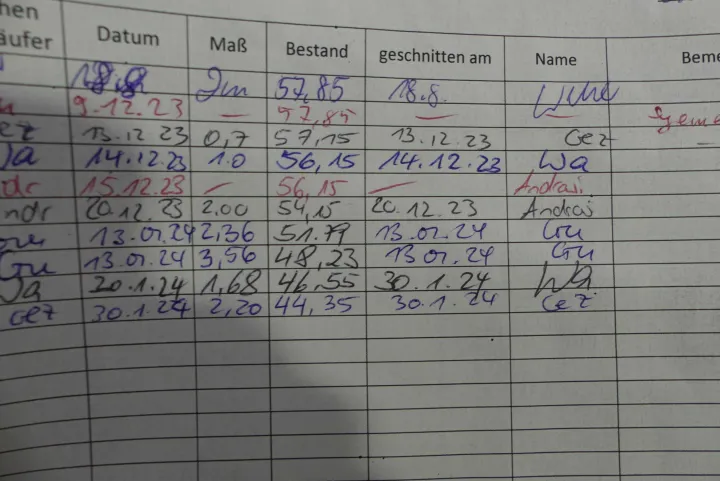 hen
äufer Datum Maß Bestand geschnitten am Name Beme
18.8 2m 57,85 18.8.
9.12.23 — 57,85 — — geme
ez 13.12 23 0,7 57,15 13.12.23 Cez
Wa 14.12.23 1.0 56,15 14.12.23 Wa
dr 15.12.23 — 56,15 — Andrasi
ndr 20.12.23 2.00 54,15 20.12.23 Andras
13.01.24 2,36 51.79 13.01.24 Gru
Gru 13.01.24 3,56 48,23 13 01.24 Gru
Wa 20.1.24 1,68 46,55 30.1.24 Wa
Cez 30.1.24 2,20 44,35 30.1.24 Cez